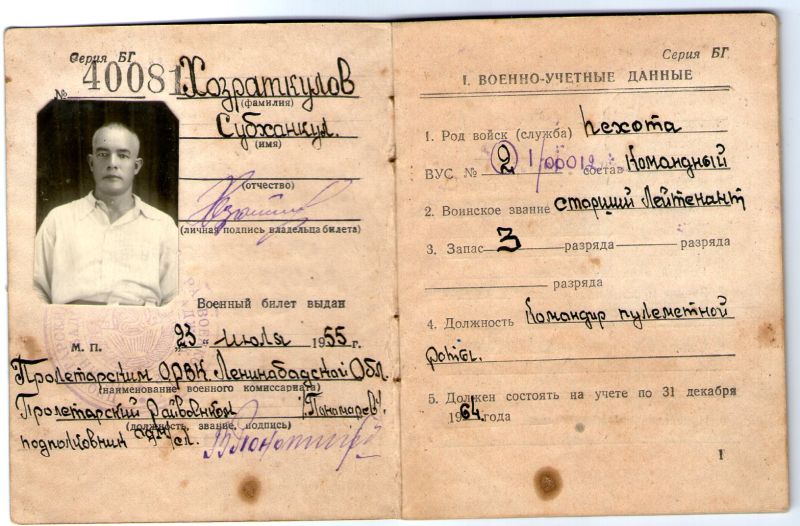 Серия БГ
№ 40081
Хозраткулов
(фамилия)
Субханкул.
(имя)
(отчество)
(личная подпись владельца билета)
Военный билет выдан
М. П. „23 июля 1955 г.
Пролетарским ОРВК Ленинабадской Обл.
(наименование военного комиссариата)
Пролетарский Райвоенком /Пономарев/.
(должность, звание, подпись)
подполковник
Серия БГ
I. ВОЕННО-УЧЕТНЫЕ ДАННЫЕ
1. Род войск (служба) пехота
ВУС № 2 1/00012 состав Командный
2. Воинское звание старший Лейтенант
3. Запас 3 разряда разряда
разряда
4. Должность Командир пулеметной
роты.
5. Должен состоять на учете по 31 декабря
1964 года
1